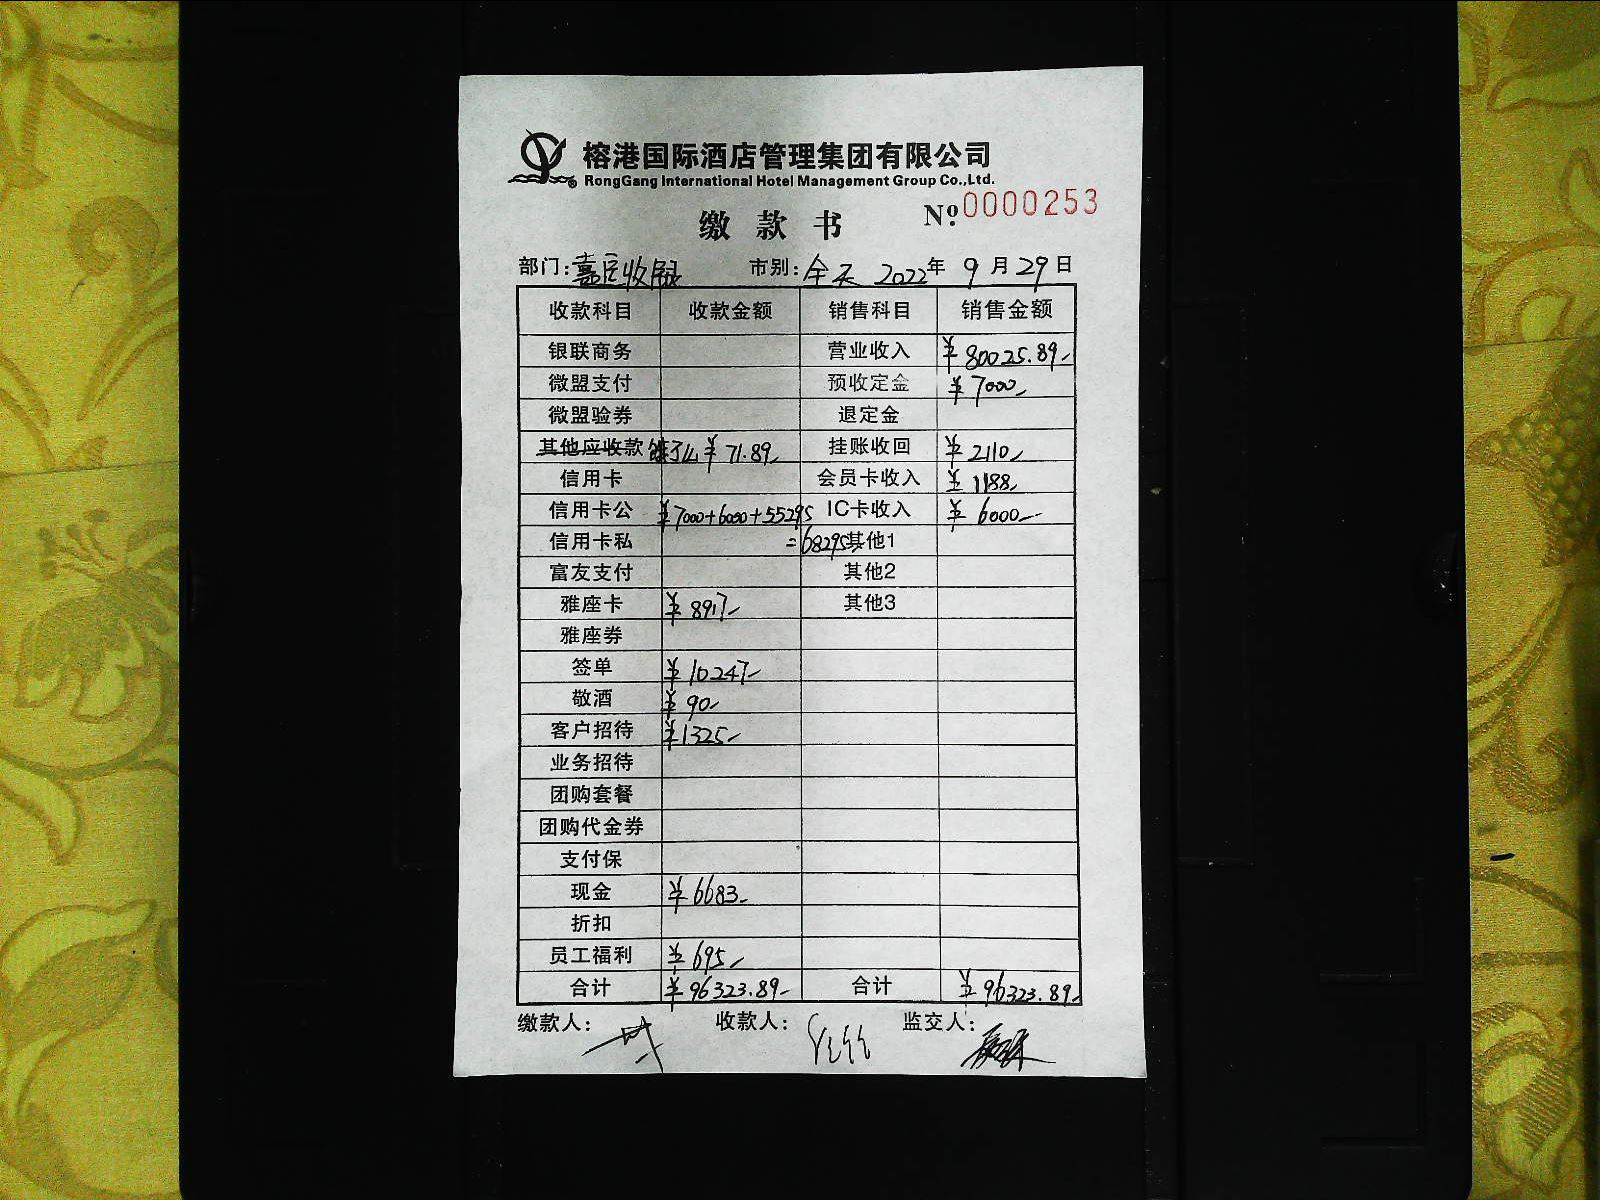 榕港国际酒店管理集团有限公司
RongGang International Hotel Management Group Co.,Ltd.
缴款书 №0000253
部门:嘉宾收银 市别:全天 2022年9月29日
收款科目 收款金额 销售科目 销售金额
银联商务 营业收入 ¥80025.89-
微盟支付 预收定金 ¥7000-
微盟验券 退定金
其他应收款 饿了么 ¥71.89- 挂账收回 ¥2110-
信用卡 会员卡收入 ¥1188-
信用卡公 ¥7000+6000+55295 IC卡收入 ¥6000-
信用卡私 =68295 其他1
富友支付 其他2
雅座卡 ¥8917- 其他3
雅座券
签单 ¥10247-
敬酒 ¥90-
客户招待 ¥1325-
业务招待
团购套餐
团购代金券
支付保
现金 ¥6683-
折扣
员工福利 ¥695-
合计 ¥96323.89- 合计 ¥96323.89-
缴款人: 收款人: 监交人: